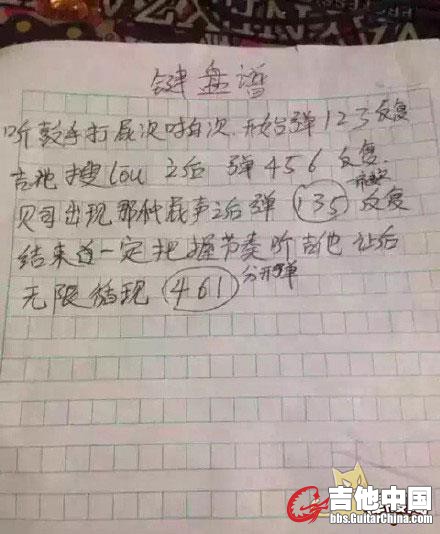 键盘谱
听鼓手打 次 次. 开始弹123反复
吉他搜lou 之后 弹456 反复.
贝司出现那种 声之后弹 135 反复
结束 一定把握节奏听吉他 让后
无限循现 461 分开弹
吉他中国
bbs.GuitarChina.com